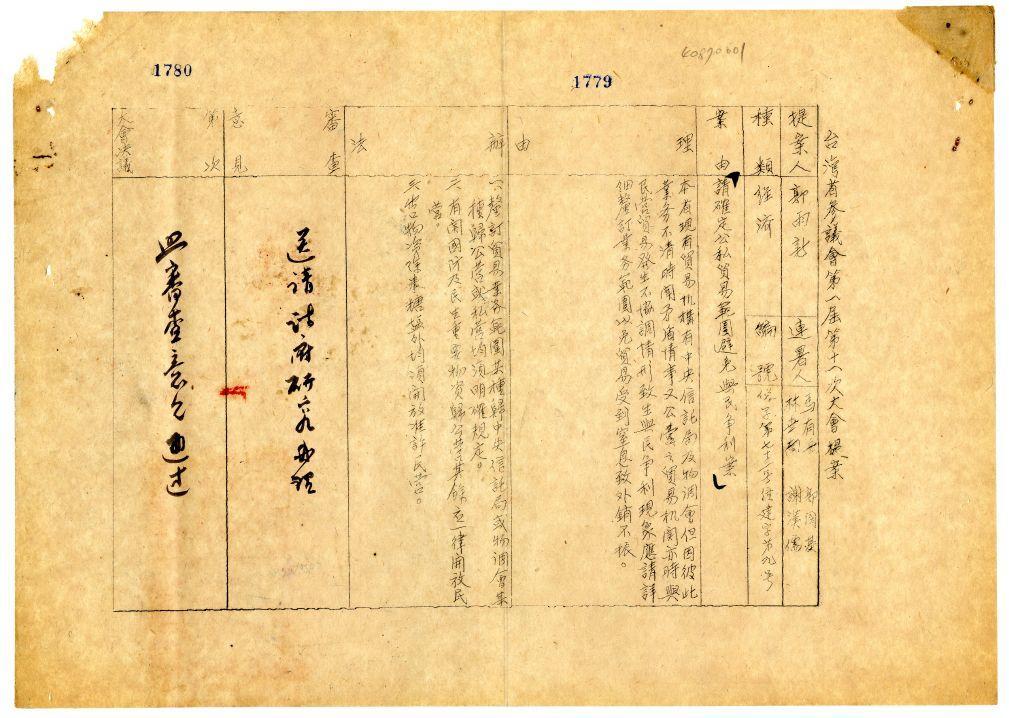 1780
1779
台灣省參議會第一屆第十一次大會提案
提案人
郭雨新
連署人
馬有岳
郭國基
謝漢儒
種類
經濟
編號
案由
請確定公私貿易範圍避免與民爭利案
理由
本省現有貿易机構有中央信託局及物調會但因彼此
業务不清時闹矛盾情事又公營之貿易机関亦時與
民营貿易發生不協調情形致生與民争利現象應請詳
細釐訂業务範圍以免貿易受到窒息致外銷不振。
辦法
一、釐訂貿易業务範圍某種歸中央信託局或物調會某
種歸公营或私营均須明確規定。
二、有関國防及民生重要物資歸公营其餘应一律開放民
营。
三、出口物資除米糖塩外均須開放准許民营。
審查意見
送請政府研究办理
第 次大會決議
照審查意見通过